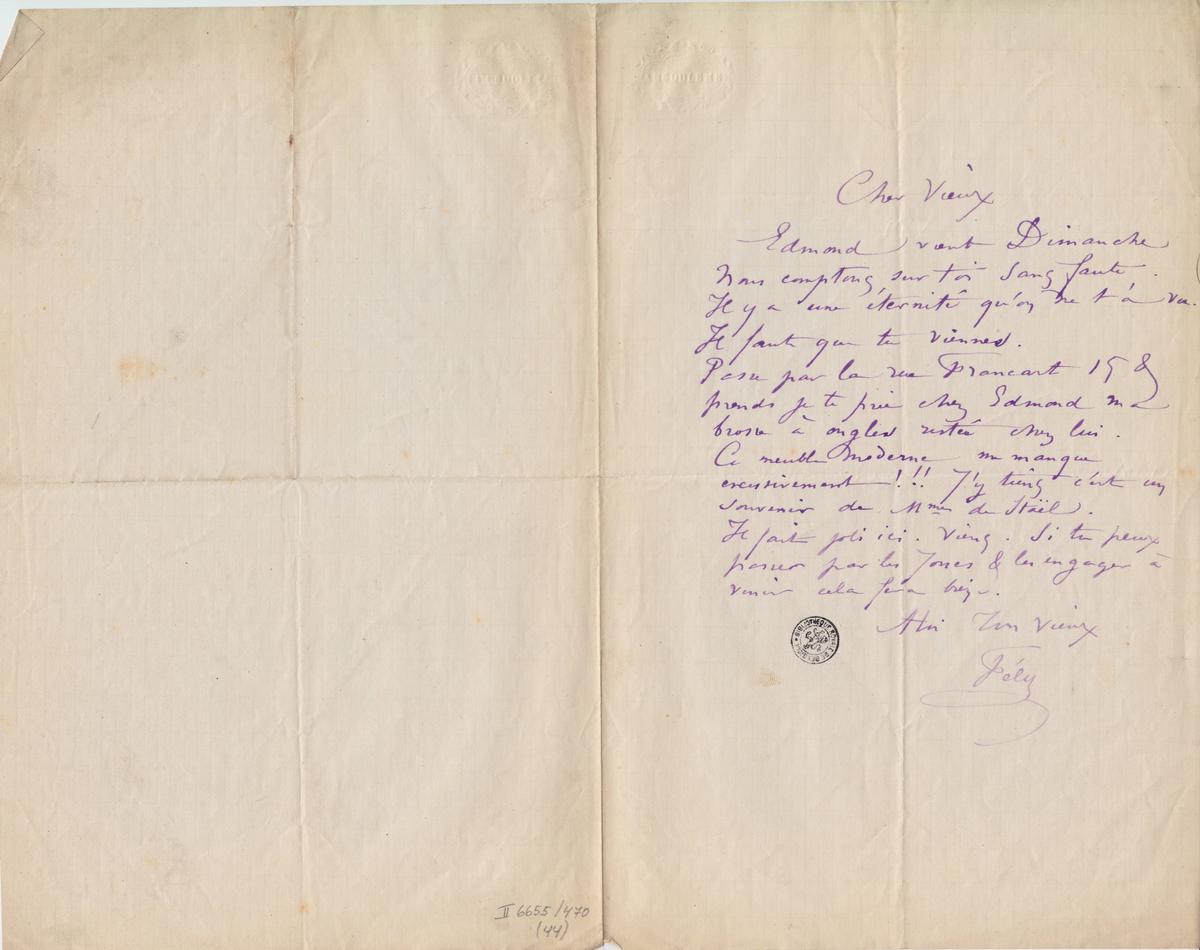 ANGOULEME
Cher Vieux
Edmond vient Dimanche
Nous comptons sur toi sans faute.
Il y a une éternité qu'on ne t'a vu.
Il faut que tu viennes.
Passe par la rue Francart 15 &
prends je te prie chez Edmond ma
brosse à ongles restée chez lui.
Ce meuble moderne me manque
excessivement !!! J'y tiens c'est un
souvenir de Mme de Staël.
Il fait joli ici. Viens. Si tu peux
passer par les Jones & les engager à
venir cela fera bien.
A toi Ton Vieux
Fély
BIBLIOTHÈQUE ROYALE DE BELGIQUE
II 6655/470
(44)